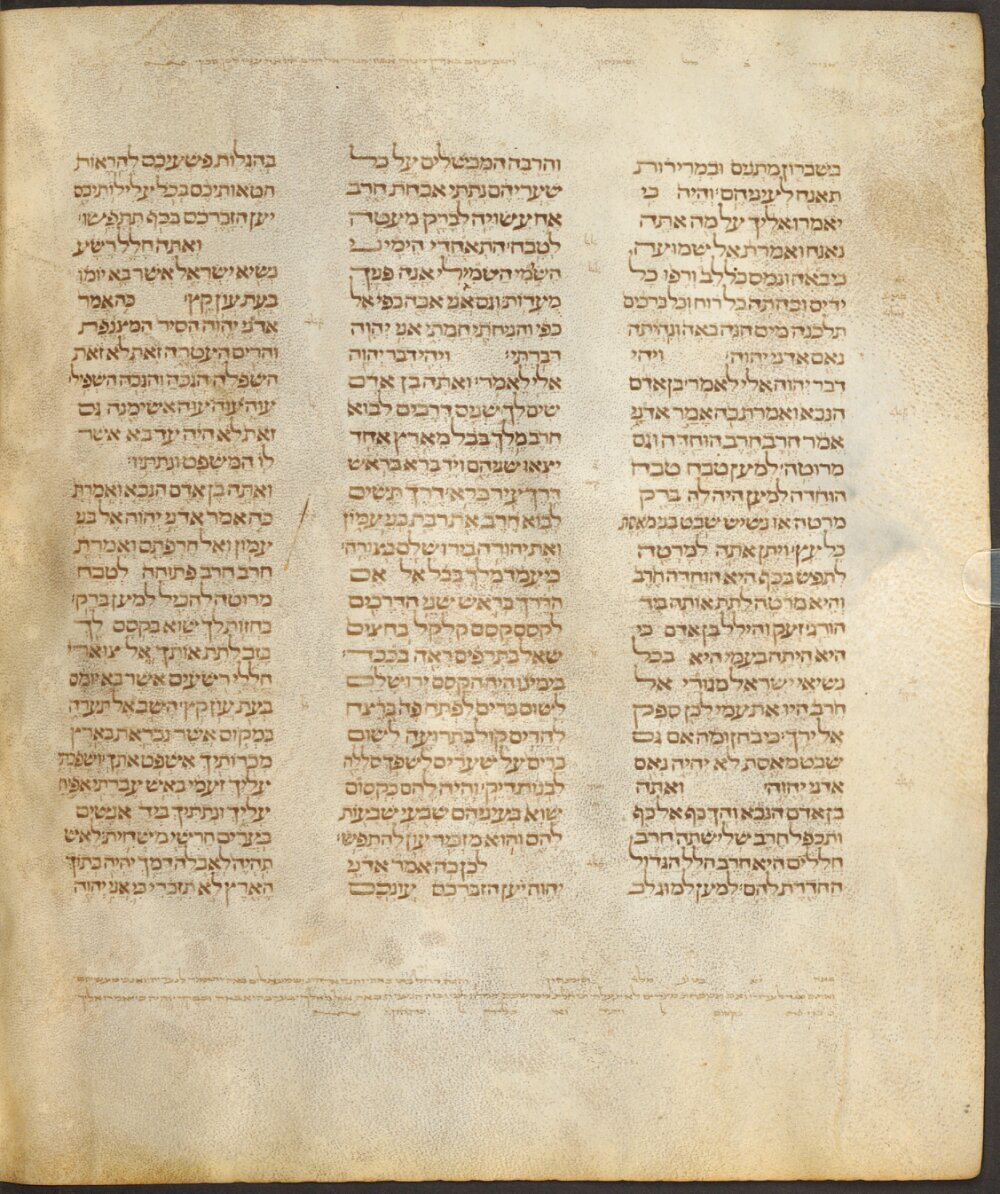 בשברון מתנים ובמרירות
תאנח לעיניהם והיה כי
יאמרו אליך על מה אתה
נאנח ואמרת אל שמועה
כי באה ונמס כל לב ורפו כל
ידים וכהתה כל רוח וכל ברכים
תלכנה מים הנה באה ונהיתה
נאם אדני יהוה ויהי
דבר יהוה אלי לאמר בן אדם
הנבא ואמרת כה אמר אדני
אמר חרב חרב הוחדה וגם
מרוטה למען טבח טבח
הוחדה למען היה לה ברק
מרטה או נשיש שבט בני מאסת
כל עץ ויתן אתה למרטה
לתפש בכף היא הוחדה חרב
והיא מרטה לתת אותה ביד
הורג זעק והילל בן אדם כי
היא היתה בעמי היא בכל
נשיאי ישראל מגורי אל
חרב היו את עמי לכן ספק
אל ירך כי בחן ומה אם גם
שבט מאסת לא יהיה נאם
אדני יהוה ואתה
בן אדם הנבא והך כף אל כף
ותכפל חרב שלישתה חרב
חללים היא חרב חלל הגדול
החדרת להם למען למוג לב
והרבה המכשלים על כל
שעריהם נתתי אבחת חרב
אח עשויה לברק מעטה
לטבח התאחדי הימיני
השמי השמילי אנה פניך
מעדות וגם אני אכה כפי אל
כפי והניחתי חמתי אני יהוה
דברתי ויהי דבר יהוה
אלי לאמר ואתה בן אדם
שים לך שנים דרכים לבוא
חרב מלך בבל מארץ אחד
יצאו שניהם ויד ברא בראש
דרך עיר ברא דרך תשים
לבוא חרב את רבת בני עמון
ואת יהודה בירושלם בצורה
כי עמד מלך בבל אל אם
הדרך בראש שני הדרכים
לקסם קסם קלקל בחצים
שאל בתרפים ראה בכבד
בימינו היה הקסם ירושלם
לשום כרים לפתח פה ברצח
להרים קול בתרועה לשום
כרים על שערים לשפך סללה
לבנות דיק והיה להם כקסום
שוא בעיניהם שבעי שבעות
להם והוא מזכיר עון להתפש
לכן כה אמר אדני
יהוה יען הזכרכם עונכם
בהגלות פשעיכם להראות
חטאותיכם בכל עלילותיכם
יען הזכרכם בכף תתפשו
ואתה חלל רשע
נשיא ישראל אשר בא יומו
בעת עון קץ כה אמר
אדני יהוה הסיר המצנפת
והרים העטרה זאת לא זאת
השפלה הגבה והגבה השפיל
עוה עוה עוה אשימנה גם
זאת לא היה עד בא אשר
לו המשפט ונתתיו
ואתה בן אדם הנבא ואמרת
כה אמר אדני יהוה אל בני
עמון ואל חרפתם ואמרת
חרב חרב פתוחה לטבח
מרוטה להכיל למען ברק
בחזות לך שוא בקסם לך
כזב לתת אותך אל צוארי
חללי רשעים אשר בא יומם
בעת עון קץ השב אל תערה
במקום אשר נבראת בארץ
מכרותיך אשפט אתך ושפכתי
עליך זעמי באש עברתי אפיח
עליך ונתתיך ביד אנשים
בערים חרשי משחית לאש
תהיה לאכלה דמך יהיה בתוך
הארץ לא תזכרי כי אני יהוה